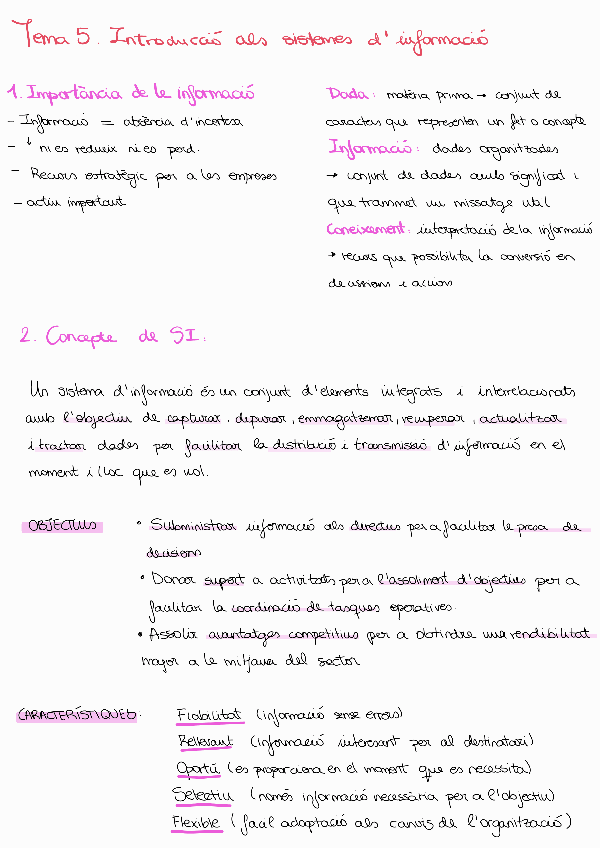 Tema 5. Introducció als sistemes d'informació
1. Importància de la informació
- Informació = absència d'incertesa
- ↓ ni es redueix ni es perd.
- Recurs estratègic per a les empreses
- actiu important
Dada: matèria prima → conjunt de
caracters que representen un fet o concepte
Informació: dades organitzades
→ conjunt de dades amb significat i
que transmet un missatge útil
Coneixement: interpretació de la informació
→ recurs que possibilita la conversió en
decisions i accions
2. Concepte de SI:
Un sistema d'informació és un conjunt d'elements integrats i interrelacionats
amb l'objectiu de capturar, depurar, emmagatzemar, recuperar, actualitzar
i tractar dades per facilitar la distribució i transmissió d'informació en el
moment i lloc que es vol.
OBJECTIUS
• Subministrar informació als directius per a facilitar la presa de
decisions
• Donar suport a activitats per a l'assoliment d'objectius per a
facilitar la coordinació de tasques operatives.
• Assolir avantatges competitius per a obtindre una rendibilitat
major a la mitjana del sector
CARACTERÍSTIQUES:
Fiabilitat (informació sense errors)
Rellevant (informació interesant per al destinatari)
Oportú (es proporciona en el moment que es necessita)
Selectiu (només informació necessària per a l'objectiu)
Flexible (facil adaptació als canvis de l'organització)